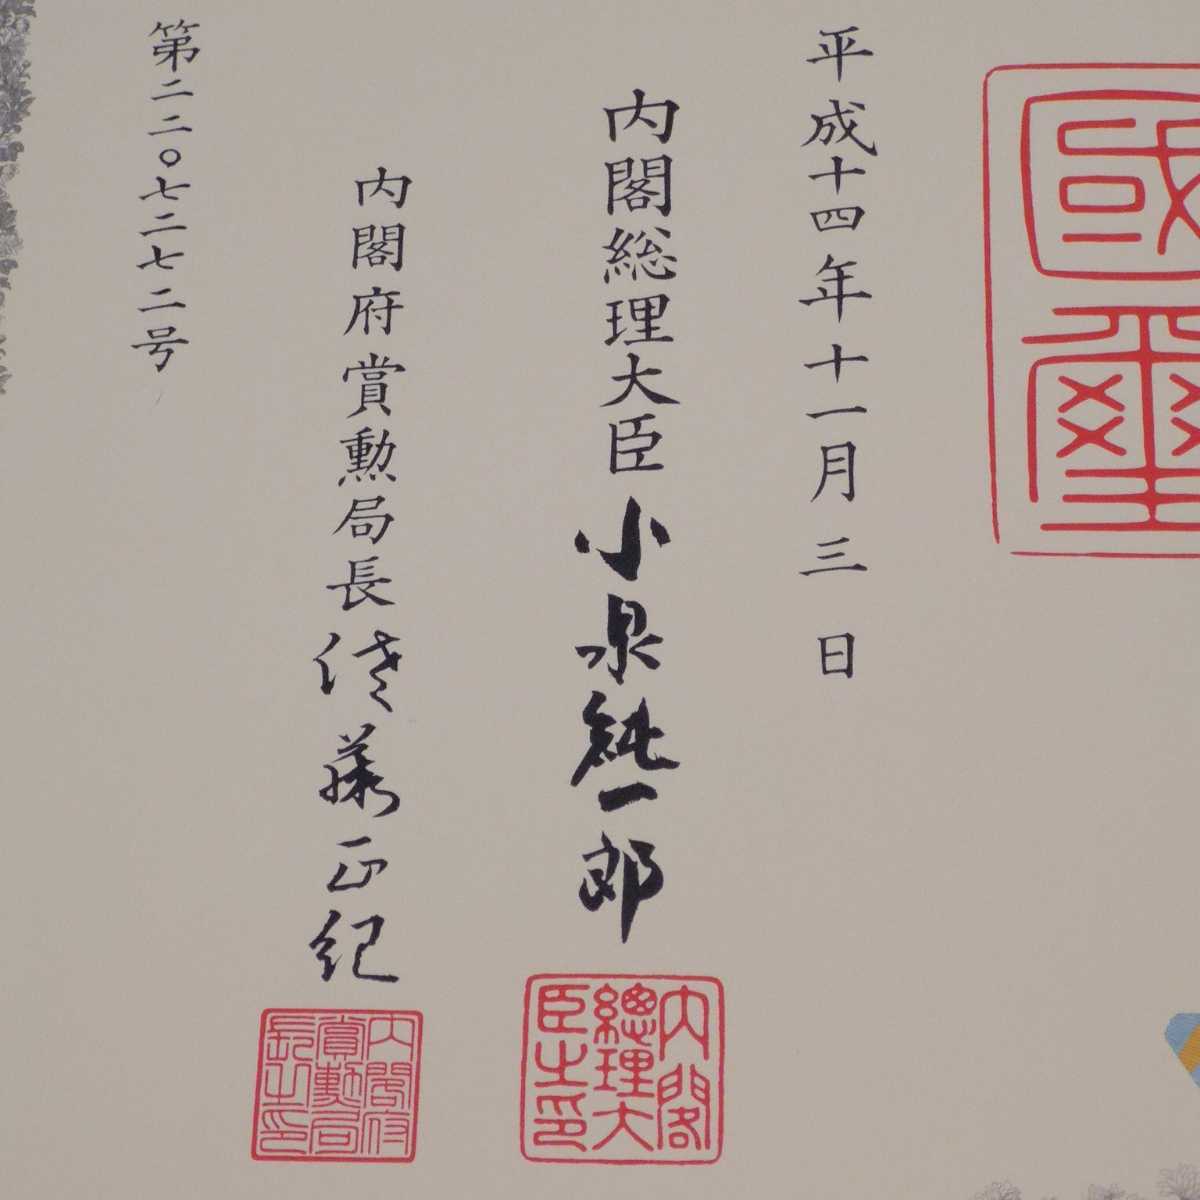 國璽
平成十四年十一月三日
内閣総理大臣 小泉純一郎
内閣總理大臣之印
内閣府賞勲局長 佐藤正紀
内閣府賞勲局長之印
第二二〇七二七二号